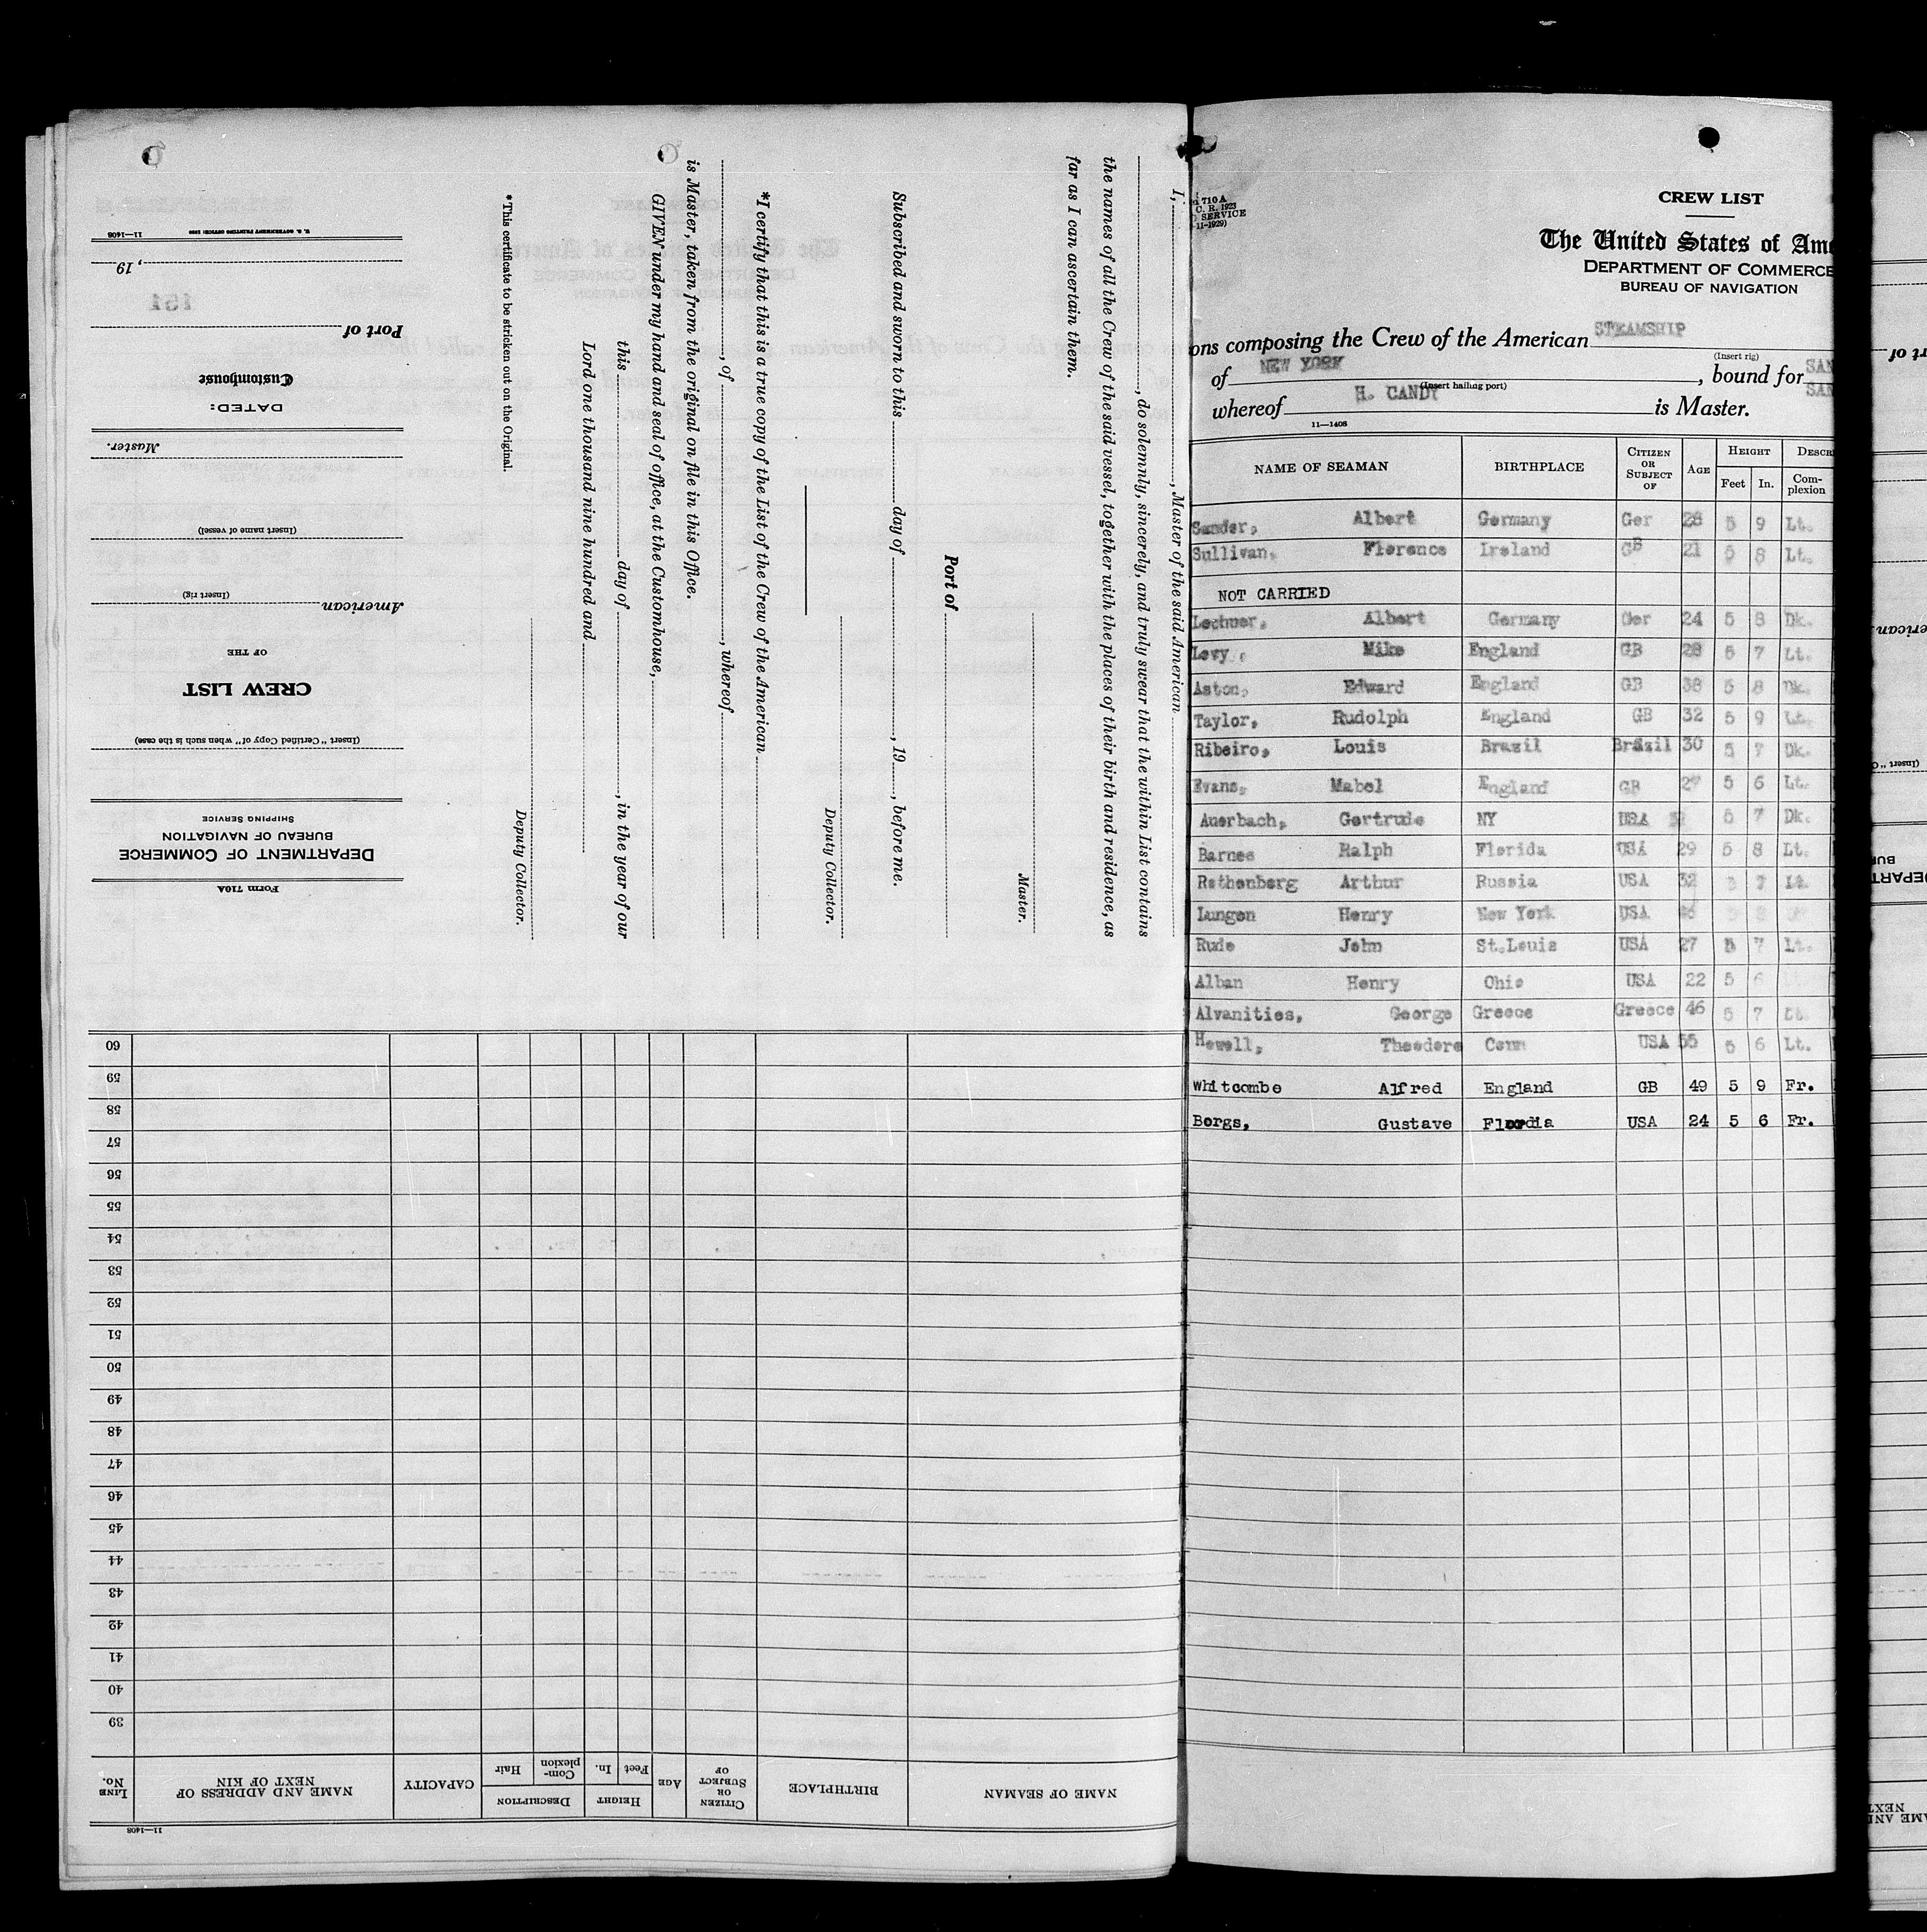 11—1408
U. S. GOVERNMENT PRINTING OFFICE: 1930
, 19
151
Port of
Customhouse
DATED:
Master.
(Insert name of vessel)
(Insert rig)
American
OF THE
CREW LIST
(Insert "Certified Copy of" when such is the case)
SHIPPING SERVICE
BUREAU OF NAVIGATION
DEPARTMENT OF COMMERCE
Form 710A
I, , Master of the said American
, do solemnly, sincerely, and truly swear that the within List contains
the names of all the Crew of the said vessel, together with the places of their birth and residence, as
far as I can ascertain them.
Master.
Port of
Subscribed and sworn to this day of , 19 , before me.
Deputy Collector.
*I certify that this is a true copy of the List of the Crew of the American
, of , whereof
is Master, taken from the original on file in this Office.
GIVEN under my hand and seal of office, at the Customhouse,
this day of , in the year of our
Lord one thousand nine hundred and
Deputy Collector.
*This certificate to be stricken out on the Original.
60
59
58
57
56
55
54
53
52
51
50
49
48
47
46
45
44
43
42
41
40
39
LINE No. NAME AND ADDRESS OF NEXT OF KIN CAPACITY DESCRIPTION Hair Complexion HEIGHT In. Feet AGE CITIZEN OR SUBJECT OF BIRTHPLACE NAME OF SEAMAN
11—1408
710A
C. R. 1923
SERVICE
11-1929)
CREW LIST
The United States of Ame
DEPARTMENT OF COMMERCE
BUREAU OF NAVIGATION
ons composing the Crew of the American STEAMSHIP
(Insert rig)
of NEW YORK , bound for SAN
(Insert hailing port)
whereof H. CANDY is Master. SAN
11—1408
NAME OF SEAMAN BIRTHPLACE CITIZEN OR SUBJECT OF AGE HEIGHT Feet In. DESCR Com-plexion
Sander, Albert Germany Ger 28 5 9 Lt.
Sullivan, Florence Ireland GB 21 5 8 Lt.
NOT CARRIED
Lechner, Albert Germany Ger 24 5 8 Dk.
Levy, Mike England GB 28 5 7 Lt.
Aston, Edward England GB 38 5 8 Dk.
Taylor, Rudolph England GB 32 5 9 Lt.
Ribeiro, Louis Brazil Brazil 30 5 7 Dk.
Evans, Mabel England GB 27 5 6 Lt.
Auerbach, Gertrude NY USA 5 7 Dk.
Barnes Ralph Florida USA 29 5 8 Lt.
Rothenberg Arthur Russia USA 32 7 Lt.
Lungen Henry New York USA
Rude John St.Louis USA 27 5 7 Lt.
Alban Henry Ohio USA 22 5 6
Alvanities, George Greece Greece 46 5 7 Lt.
Howell, Theodore Conn USA 55 5 6 Lt.
Whitcombe Alfred England GB 49 5 9 Fr.
Borgs, Gustave Flordia USA 24 5 6 Fr.